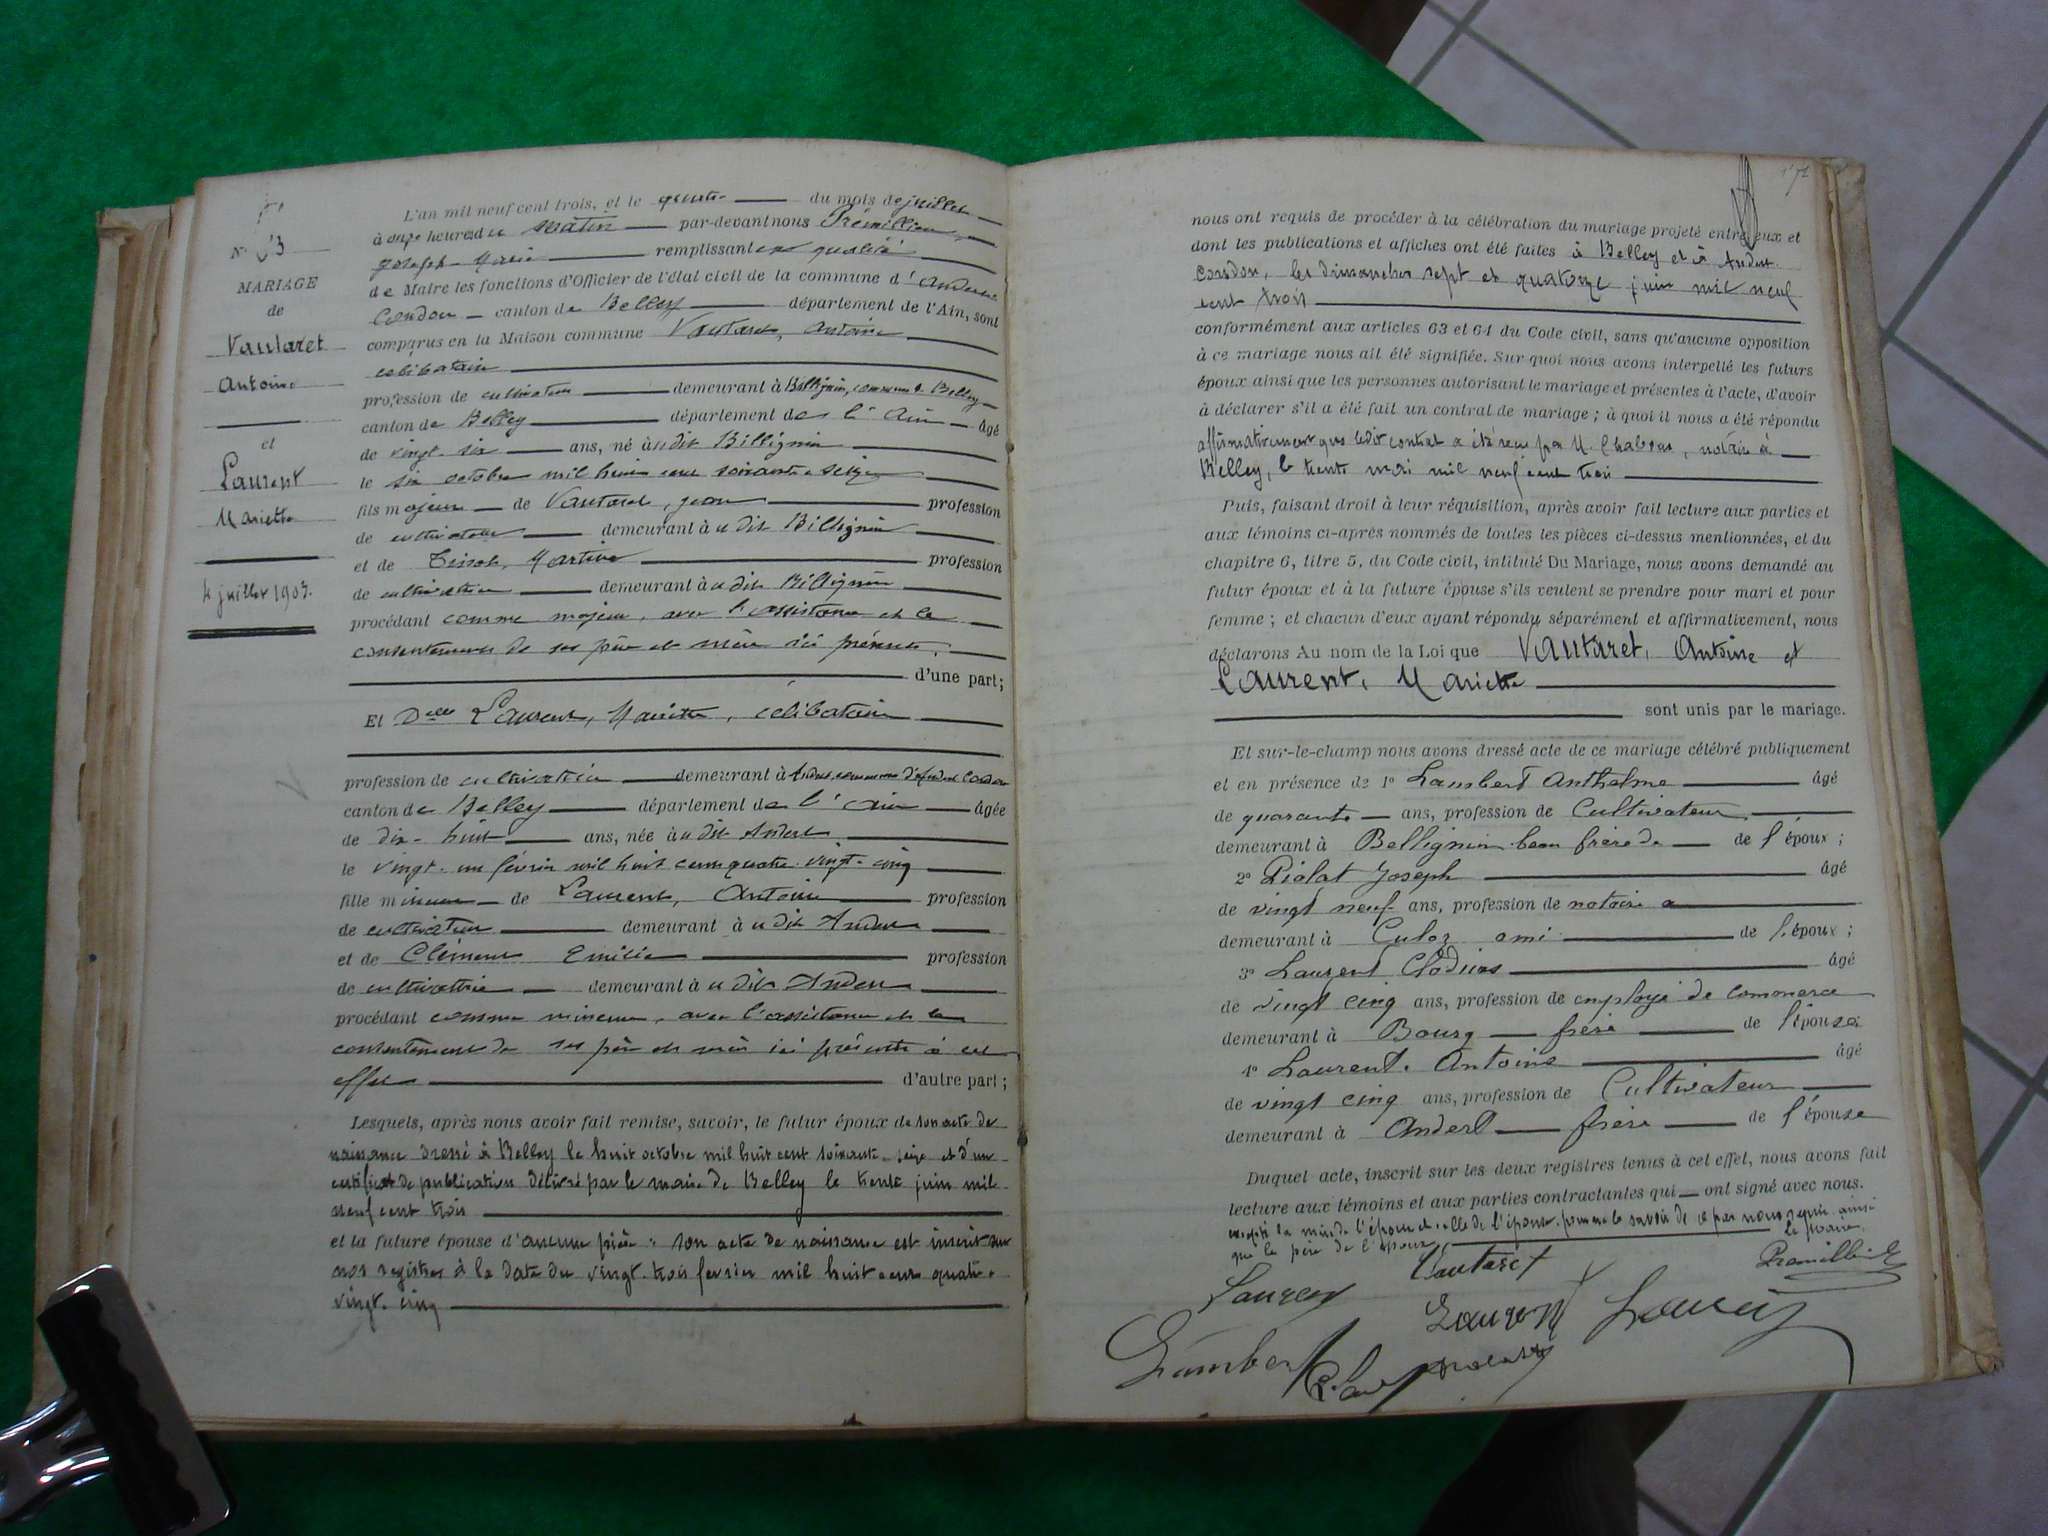 N° 3
MARIAGE
de
Vautaret
Antoine
et
Laurent
Mariette
4 juillet 1903.
L'an mil neuf cent trois, et le quatre du mois de juillet
à onze heures du matin par-devant nous Prémillieu,
Joseph-Marie remplissant en qualité
de Maire les fonctions d'Officier de l'état civil de la commune d'Andert-
Condon canton de Belley département de l'Ain, sont
comparus en la Maison commune Vautaret, Antoine
célibataire
profession de cultivateur demeurant à Billignin, commune de Belley
canton de Belley département de l'Ain âgé
de vingt-six ans, né audit Billignin
le six octobre mil huit cent soixante-seize
fils majeur de Vautaret, Jean profession
de cultivateur demeurant audit Billignin
et de Tissot, Martine profession
de cultivatrice demeurant audit Billignin
procédant comme majeur, avec l'assistance et le
consentement de ses père et mère ici présents,
d'une part;
Et Delle Laurent, Mariette, célibataire
profession de cultivatrice demeurant à Andert, commune d'Andert-Condon
canton de Belley département de l'Ain âgée
de dix-huit ans, née audit Andert
le vingt-un février mil huit cent quatre-vingt-cinq
fille mineure de Laurent, Antoine profession
de cultivateur demeurant audit Andert
et de Clément Emilie profession
de cultivatrice demeurant audit Andert
procédant comme mineure, avec l'assistance et le
consentement de ses père et mère ici présents à cet
effet d'autre part;
Lesquels, après nous avoir fait remise, savoir, le futur époux de son acte de
naissance dressé à Belley le huit octobre mil huit cent soixante-seize et d'un
certificat de publication délivré par le maire de Belley le trente juin mil
neuf cent trois
et la future épouse d'aucune pièce : son acte de naissance est inscrit sur
nos registres à la date du vingt-trois février mil huit cent quatre-
vingt-cinq
nous ont requis de procéder à la célébration du mariage projeté entre eux et
dont les publications et affiches ont été faites à Belley et à Andert-
Condon, les dimanches sept et quatorze juin mil neuf
cent trois
conformément aux articles 63 et 64 du Code civil, sans qu'aucune opposition
à ce mariage nous ait été signifiée. Sur quoi nous avons interpellé les futurs
époux ainsi que les personnes autorisant le mariage et présentes à l'acte, d'avoir
à déclarer s'il a été fait un contrat de mariage ; à quoi il nous a été répondu
affirmativement que ledit contrat a été reçu par M. notaire à
Belley, le trente mai mil neuf cent trois
Puis, faisant droit à leur réquisition, après avoir fait lecture aux parties et
aux témoins ci-après nommés de toutes les pièces ci-dessus mentionnées, et du
chapitre 6, titre 5, du Code civil, intitulé Du Mariage, nous avons demandé au
futur époux et à la future épouse s'ils veulent se prendre pour mari et pour
femme ; et chacun d'eux ayant répondu séparément et affirmativement, nous
déclarons Au nom de la Loi que Vautaret, Antoine et
Laurent, Mariette
sont unis par le mariage.
Et sur-le-champ nous avons dressé acte de ce mariage célébré publiquement
et en présence de 1° Lambert Anthelme âgé
de quarante ans, profession de Cultivateur
demeurant à Bellignin beau frère de de l'époux ;
2° Piolat Joseph âgé
de vingt neuf ans, profession de notaire a
demeurant à Culoz ami de l'époux ;
3° Laurent Clodius âgé
de vingt cinq ans, profession de employé de commerce
demeurant à Bourg frère de l'épouse
4° Laurent Antoine âgé
de vingt cinq ans, profession de Cultivateur
demeurant à Andert frère de l'épouse
Duquel acte, inscrit sur les deux registres tenus à cet effet, nous avons fait
lecture aux témoins et aux parties contractantes qui ont signé avec nous.
excepté la mère de l'époux et celle de l'épouse pour ne le savoir de ce par nous requis ainsi
que le père de l'époux
Le Maire
Vautaret
Laurent
Laurent
Lambert